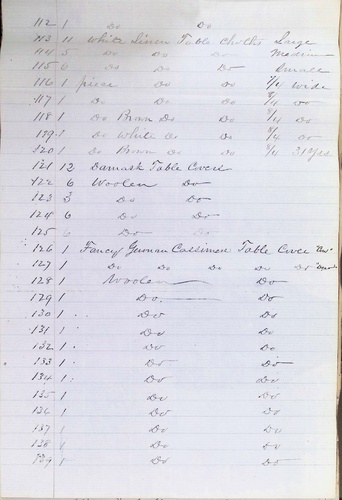 112 1 Do Do
113 11 White Linen Table Cloths Large
114 5 Do Do Do Medium
115 6 Do Do Do Small
116 1 piece Do Do 7/4 wide
117 1 Do Do Do 8/4 Do
118 1 Do Brown Do Do 8/4 Do
119 1 Do White Do Do 8/4 Do
120 1 Do Brown Do Do 8/4 31 yds
121 12 Damask Table Covers
122 6 Woolen Do
123 3 Do Do
124 6 Do Do
125 6 Do Do
126 1 Fancy German Cassimere Table Cover
127 1 Do Do Do Do Do
128 1 Woolen Do
129 1 Do Do
130 1 Do Do
131 1 Do Do
132 1 Do Do
133 1 Do Do
134 1 Do Do
135 1 Do Do
136 1 Do Do
137 1 Do Do
138 1 Do Do
139 1 Do Do